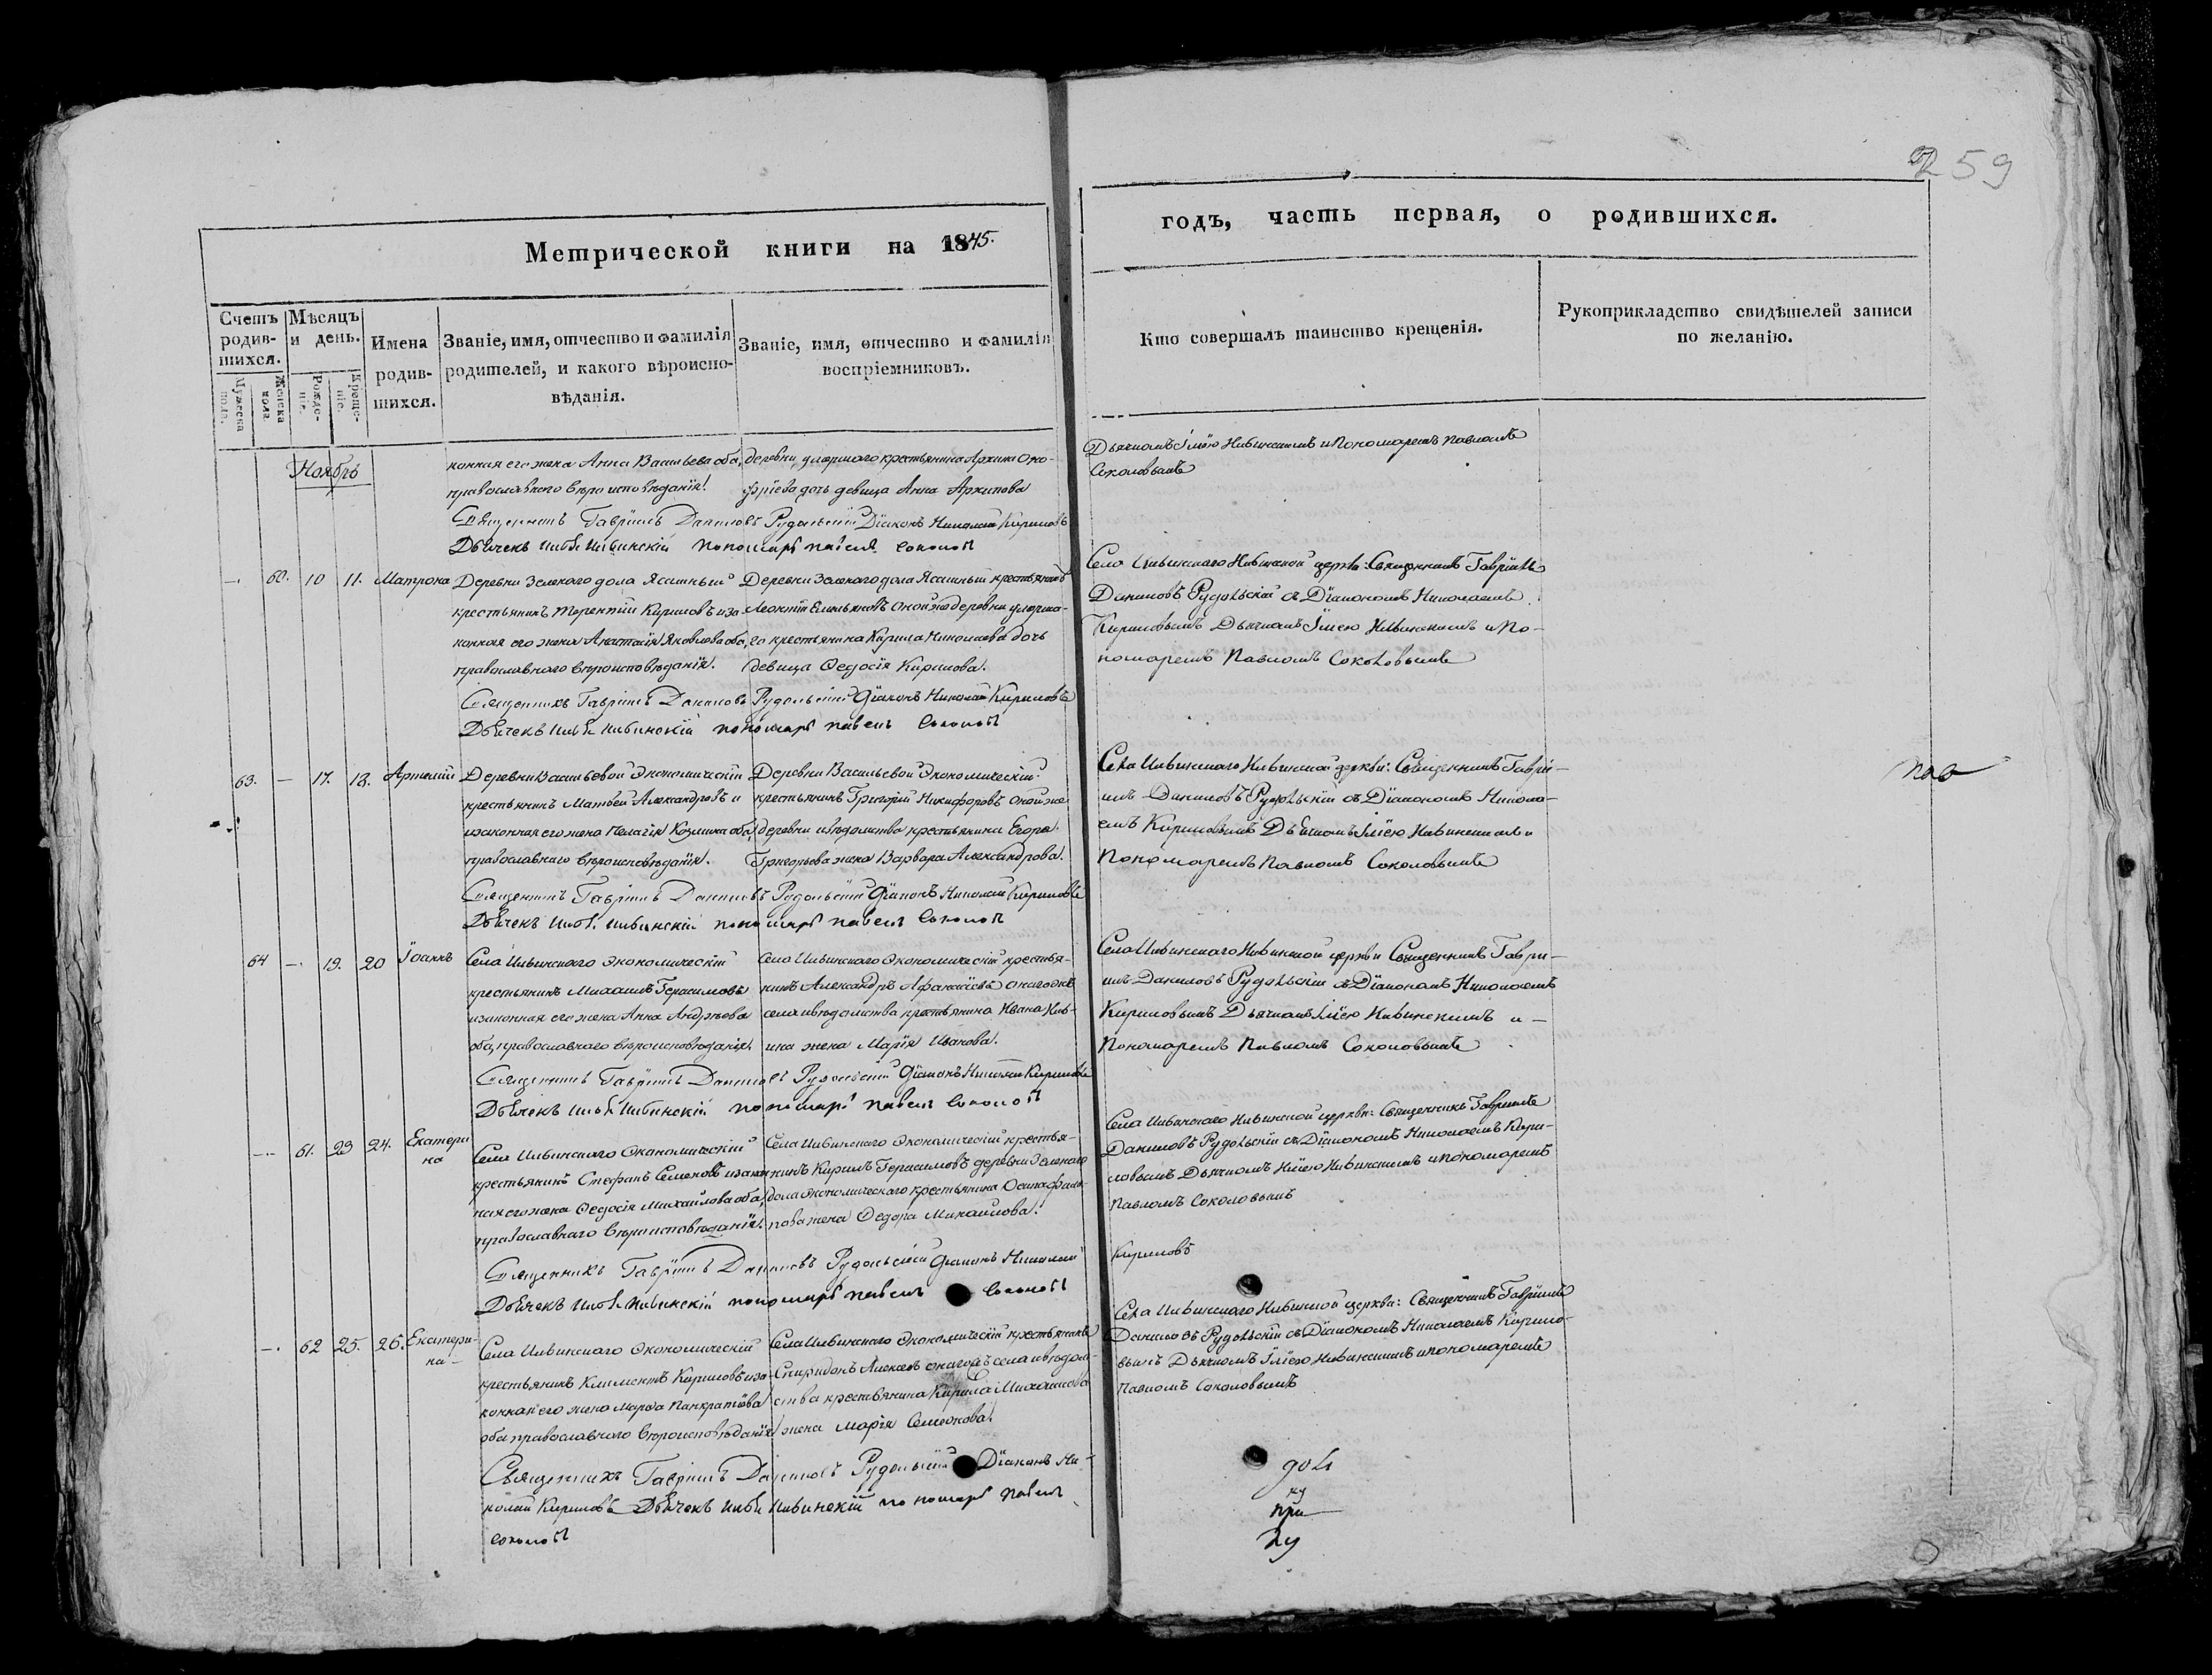 259
Метрической книги на 1845.
годъ, часть первая, о родившихся.
Счетъ родив-шихся.
Мужеска пола.
Женска пола.
Мѣсяцъ и день.
Рожде-ніе.
Креще-ніе.
Имена родив-шихся.
Званіе, имя, отчество и фамилія родителей, и какого вѣроиспо-вѣданія.
Званіе, имя, отчество и фамилія воспріемниковъ.
Кто совершалъ таинство крещенія.
Рукоприкладство свидѣтелей записи по желанію.
Ноябрь
конная его жена Анна Васильева оба
православнаго вѣроисповѣданія.
деревни умершаго крестьянина Архипа Оно-
фріева дочь девица Анна Архипова
Дьячкомъ Ильею Ивинскимъ и Пономаремъ Павломъ
Соколовымъ
Священникъ Гавріилъ Даниловъ Рудольскій Діаконъ Николай Кириловъ
Дьячекъ Илья Ивинскій пономарь павелъ Соколов
— 60. 10 11. Матрона
Деревни Зеленаго дола Ясашный
крестьянинъ Терентій Кириловъ и за-
конная его жена Анастасія Яковлева оба
православнаго вѣроисповѣданія.
Деревни Зеленаго дола Ясашный крестьянинъ
Леонтій Емельяновъ оной же деревни умерша-
го крестьянина Кирила Николаева дочь
девица Ѳедосія Кирилова.
Села Ивинскаго Ивинской церкви: Священникъ Гавріилъ
Даниловъ Рудольскій съ Діакономъ Николаемъ
Кириловымъ Дьячкомъ Ильею Ивинскимъ и По-
номаремъ Павломъ Соколовымъ
Священникъ Гавріилъ Даниловъ Рудольскій Діаконъ Николай Кириловъ
Дьячекъ Илья Ивинскій пономарь павелъ Соколов
63. — 17. 18. Артемій
Деревни Васильевой Экономическій
крестьянинъ Матвей Александровъ и
законная его жена Пелагія Козмина оба
православнаго вѣроисповѣданія.
Деревни Васильевой Экономическій
крестьянинъ Григорій Никифоровъ оной же
деревни и вѣдомства крестьянина Егора
Григорьева жена Варвара Александрова.
Села Ивинскаго Ивинской церкви: Священникъ Гаврі-
илъ Даниловъ Рудольскій съ Діакономъ Никола-
емъ Кириловымъ Дьячкомъ Ильею Ивинскимъ и
Пономаремъ Павломъ Соколовымъ
Священникъ Гавріилъ Даниловъ Рудольскій Діаконъ Николай Кириловъ
Дьячекъ Илья Ивинскій пономарь павелъ Соколов
64 — 19. 20 Іоаннъ
Села Ивинскаго Экономическій
крестьянинъ Михаилъ Герасимовъ
и законная его жена Анна Андрѣева
оба православнаго вѣроисповѣданія.
Села Ивинскаго Экономическій крестья-
нинъ Александръ Афанасіевъ онаго же
села и вѣдомства крестьянина Ивана
жена Марія Иванова.
Села Ивинскаго Ивинской церкви Священникъ Гаври-
илъ Даниловъ Рудольскій съ Діакономъ Николаемъ
Кириловымъ Дьячкомъ Ильею Ивинскимъ и —
Пономаремъ Павломъ Соколовымъ
Священникъ Гавріилъ Даниловъ Рудольскій Діаконъ Николай Кириловъ
Дьячекъ Илья Ивинскій пономарь павелъ Соколов
— 61. 23 24. Екатери
на
Села Ивинскаго Экономическій
крестьянинъ Стефанъ Семеновъ и закон
ная его жена Ѳедосія Михайлова оба
православнаго вѣроисповѣданія.
Села Ивинскаго Экономическій крестья-
нинъ Кирилъ Герасимовъ деревни Зеленаго
дола экономическаго крестьянина Осипа Фили-
пова жена Ѳедора Михайлова.
Села Ивинскаго Ивинской церкви: Священникъ Гавріилъ
Даниловъ Рудольскій съ Діакономъ Николаемъ Кири-
ловымъ Дьячкомъ Ильею Ивинскимъ и пономаремъ
Павломъ Соколовымъ
Священникъ Гавріилъ Даниловъ Рудольскій Діаконъ Николай Кириловъ
Дьячекъ Илья Ивинскій пономарь павелъ Соколов
— 62 25. 26. Екатери-
на —
Села Ивинскаго Экономическій
крестьянинъ Климентъ Кириловъ и за-
конная его жена Марѳа Панкратіева
оба православнаго вѣроисповѣданія
Села Ивинскаго Экономическій крестьянинъ
Спиридонъ онаго жъ села и вѣдом-
ства крестьянина Кирила Михайлова
жена Марія Семенова.
Села Ивинскаго Ивинской церкви: Священникъ Гавріилъ
Даниловъ Рудольскій съ Діакономъ Николаемъ Кирило-
вымъ Дьячкомъ Ильею Ивинскимъ и пономаремъ
Павломъ Соколовымъ
Священникъ Гавріилъ Даниловъ Рудольскій Діаконъ Ни-
колай Кириловъ Дьячекъ Илья Ивинскій пономарь павелъ
Соколов